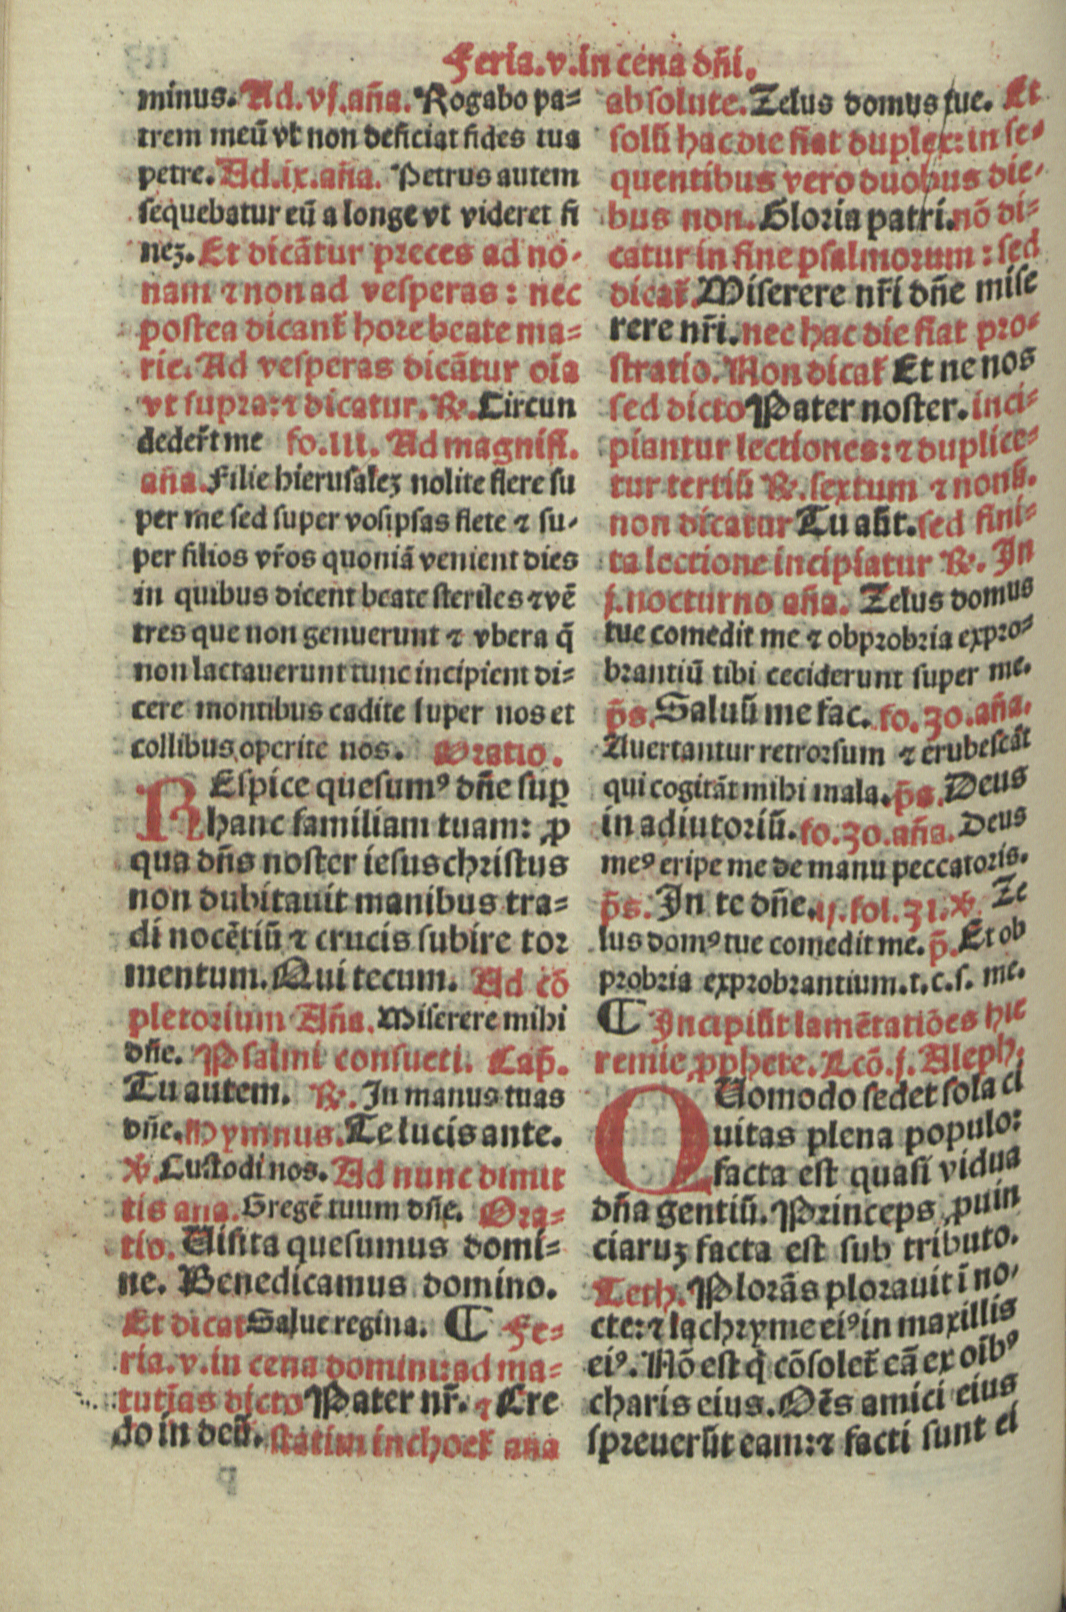 Feria.v.in cena dñi.
minus. Ad.vj.aña. Rogabo pa=
trem meũ vt non deficiat fides tua
petre. Ad.ix.aña. Petrus autem
sequebatur eũ a longe vt videret fi
neȝ. Et dicãtur preces ad no-
nam ⁊ non ad vesperas: nec
postea dicant̃ hore beate ma=
rie. Ad vesperas dicãtur oĩa
vt supra: ⁊ dicatur. ℟. Circun
deder̃t me fo.III. Ad magnifi.
aña. Filie hierusaleȝ nolite flere su
per me sed super vosipsas flete ⁊ su-
per filios vr̃os quoniã venient dies
in quibus dicent beate steriles ⁊ vẽ
tres que non genuerunt ⁊ vbera q̃
non lactauerunt tunc incipient di=
cere montibus cadite super nos et
collibus operite nos. Oratio.
REspice quesumꝰ dñe suꝑ
hanc familiam tuam: ꝓ
qua dñs noster iesus christus
non dubitauit manibus tra=
di nocẽtiũ ⁊ crucis subire tor
mentum. Qui tecum. Ad cõ
pletorium Aña. Miserere mihi
dñe. Psalmi consueti. Cap̃.
Tu autem. ℟. In manus tuas
dñe. Hymnus. Te lucis ante.
℣. Custodi nos. Ad nunc dimit
tis aña. Gregẽ tuum dñe. Ora=
tio. Uisita quesumus domi=
ne. Benedicamus domino.
Et dicat Salue regina. ¶ Fe=
ria.v.in cena domini: ad ma=
tutĩas dicto Pater nr̃. ⁊ Cre
do in deũ. statim inchoet̃ aña
p
absolute. Zelus domus tue. Et
solũ hac die fiat duplex: in se-
quentibus vero duobus die-
bus non. Gloria patri. nõ di=
catur in fine psalmorum: sed
dicat̃. Miserere nr̃i dñe mise
rere nr̃i. nec hac die fiat pro-
stratio. Non dicat̃ Et ne nos
sed dicto Pater noster. inci=
piantur lectiones: ⁊ duplice=
tur tertiũ ℟. sextum ⁊ nonũ.
non dicatur Tu aũt. sed fini=
ta lectione incipiatur ℟. In
j. nocturno aña. Zelus domus
tue comedit me ⁊ obprobria expro=
brantiũ tibi ceciderunt super me.
p̃s. Saluũ me fac. fo.30. aña.
Auertantur retrorsum ⁊ erubescãt
qui cogitãt mihi mala. p̃s. Deus
in adiutoriũ. fo.30. aña. Deus
meꝰ eripe me de manu peccatoris.
p̃s. In te dñe. ij. fol.31. ℣. Ze
lus domꝰ tue comedit me. p̃. Et ob
probria exprobrantium.t.c.s. me.
¶ Incipiũt lamẽtatiões hie
remie ꝓphete. Lcõ. j. Aleph.
QUomodo sedet sola ci
uitas plena populo:
facta est quasi vidua
dña gentiũ. Princeps ꝓuin
ciaruȝ facta est sub tributo.
Teth. Plorãs plorauit ĩ no-
cte: ⁊ lachryme eiꝰ in maxillis
eiꝰ. Nõ est q̃ cõsolet̃ eã ex oĩbꝰ
charis eius. Oẽs amici eius
spreuerũt eam: ⁊ facti sunt ei